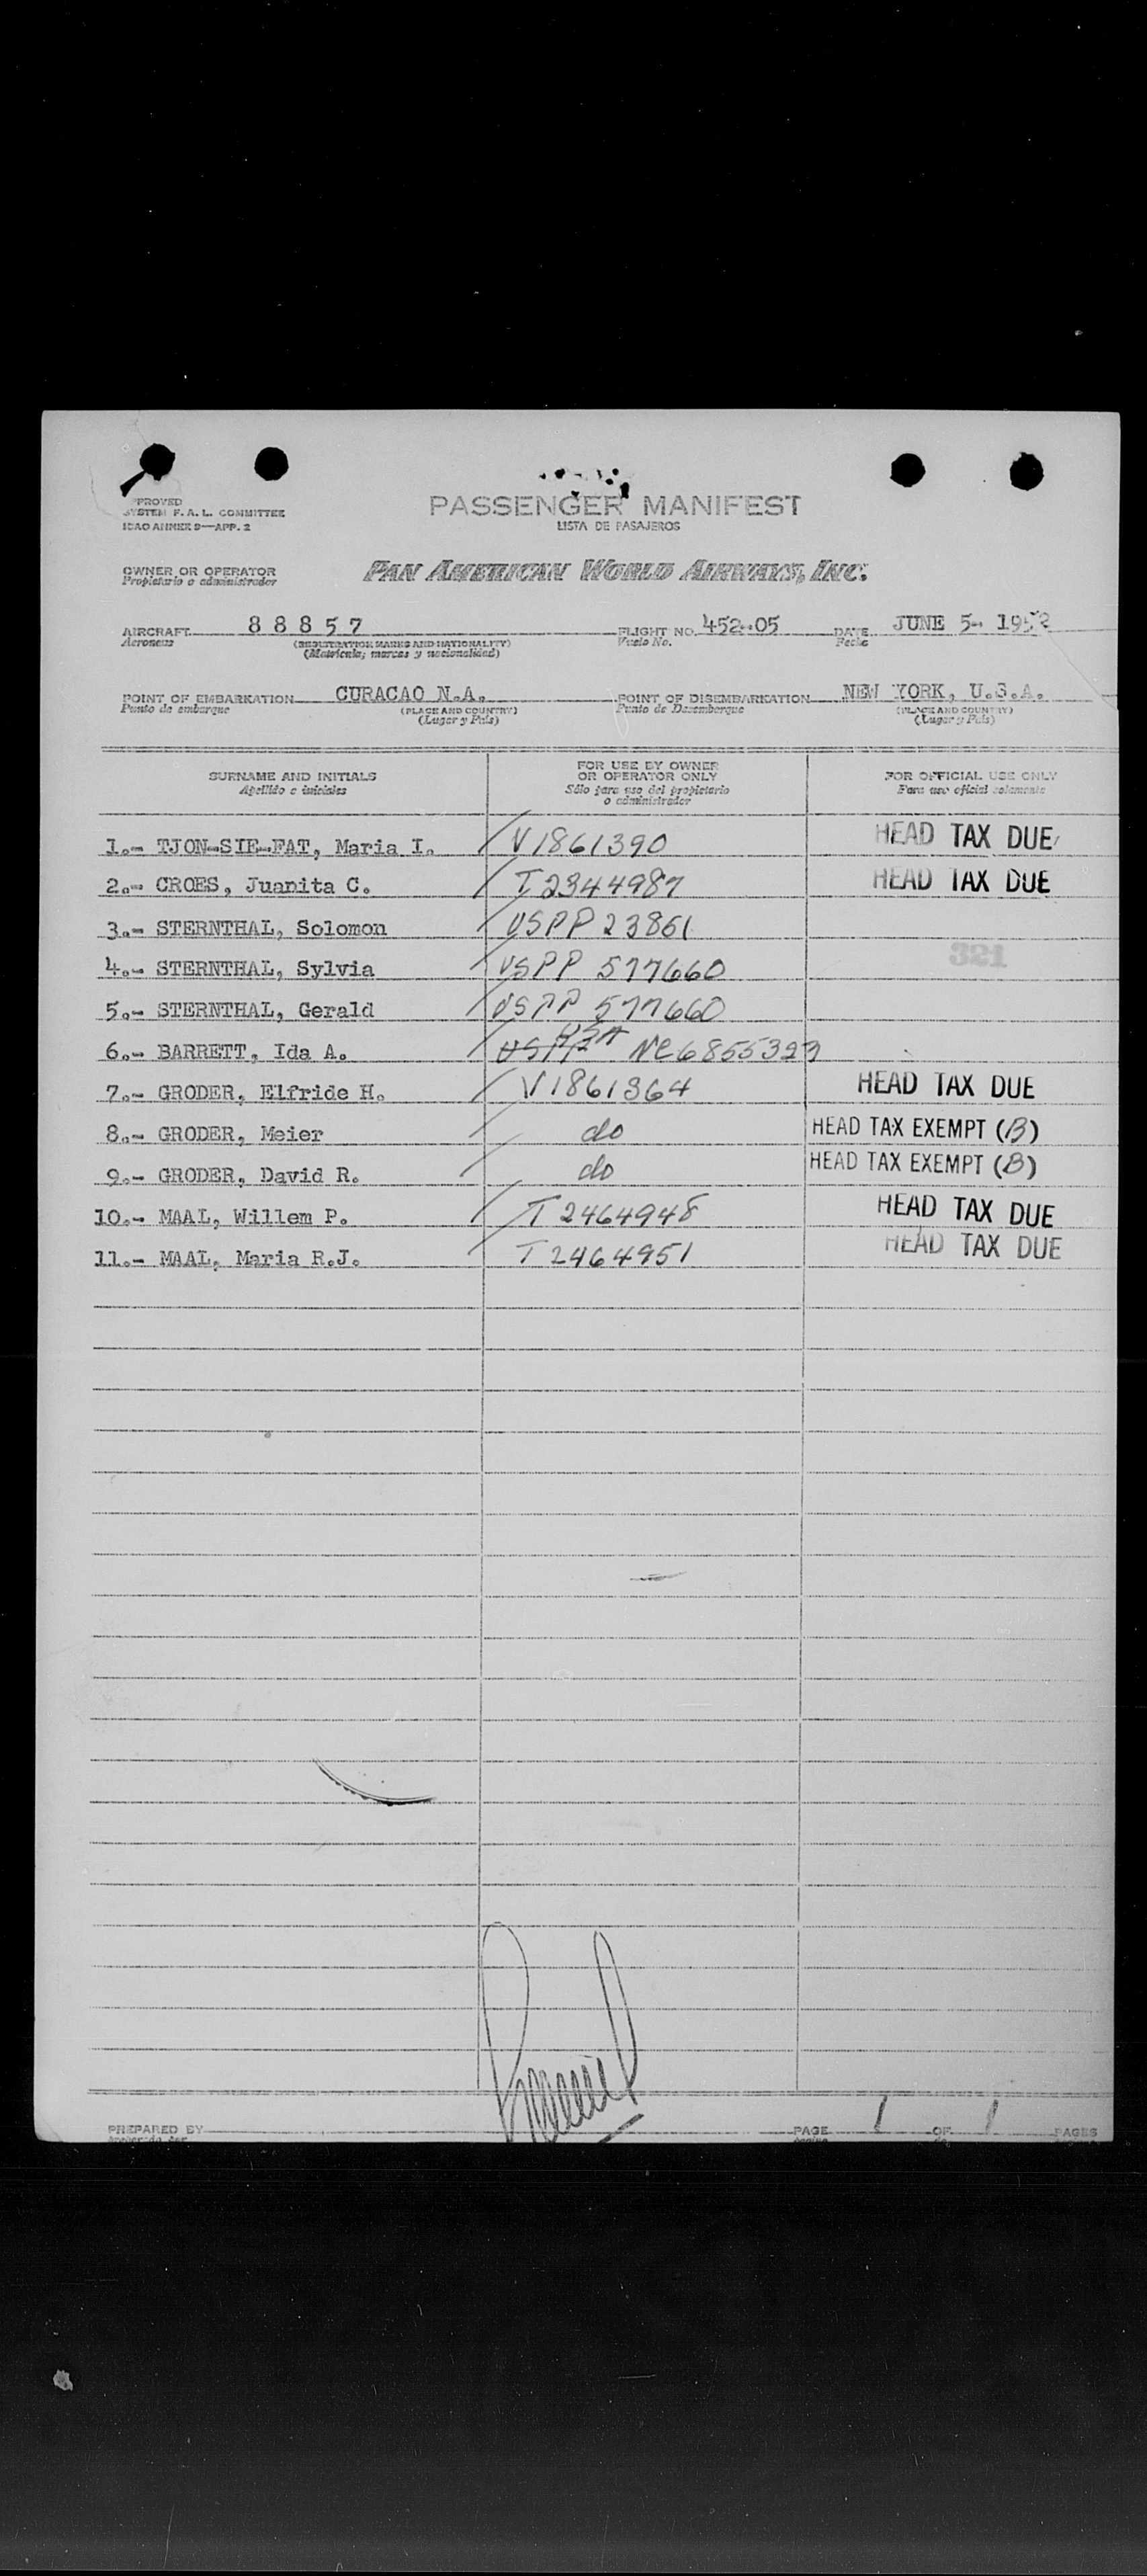 PROVED
SYSTEM F. A. L. COMMITTEE
ICAO ANNEX 9—APP. 2
PASSENGER MANIFEST
LISTA DE PASAJEROS
OWNER OR OPERATOR
Propietario o administrador
PAN AMERICAN WORLD AIRWAYS, INC.
AIRCRAFT 8 8 8 5 7 FLIGHT NO. 452-05 DATE JUNE 5- 1952
Aeronave (REGISTRATION MARKS AND NATIONALITY) Vuelo No. Fecha
(Matrícula, marcas y nacionalidad)
POINT OF EMBARKATION CURACAO N.A. POINT OF DISEMBARKATION NEW YORK, U.S.A.
Punto de embarque (PLACE AND COUNTRY) Punto de Desembarque (PLACE AND COUNTRY)
(Lugar y País) (Lugar y País)
SURNAME AND INITIALS
Apellido e iniciales
FOR USE BY OWNER
OR OPERATOR ONLY
Sólo para uso del propietario
o administrador
FOR OFFICIAL USE ONLY
Para uso oficial solamente
1.- TJON-SIE-FAT, Maria I. V1861390 HEAD TAX DUE
2.- CROES, Juanita C. T2344987 HEAD TAX DUE
3.- STERNTHAL, Solomon USPP 23861
4.- STERNTHAL, Sylvia USPP 577660
321
5.- STERNTHAL, Gerald USPP 577660
6.- BARRETT, Ida A. USPP USA NC6855323
7.- GRODER, Elfride H. V1861364 HEAD TAX DUE
8.- GRODER, Meier do HEAD TAX EXEMPT (B)
9.- GRODER, David R. do HEAD TAX EXEMPT (B)
10.- MAAL, Willem P. T2464948 HEAD TAX DUE
11.- MAAL, Maria R.J. T2464951 HEAD TAX DUE
PREPARED BY PAGE 1 OF 1 PAGES